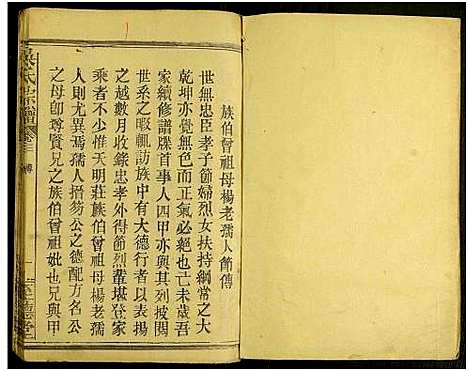 族伯曾祖母楊老孺人節傳
世無忠臣孝子節婦烈女扶持綱常之大
乾坤亦覺無色而正氣必絕也己未歲吾
家續修譜牒首事人四甲亦與其列披閱
世系之暇輒訪族中有大德行者以表揚
之越數月收錄忠孝外得節烈輩堪登家
乘者不少惟天明莊族伯曾祖母楊老孺
人則尤異焉孺人搢笏公之德配方名公
之母卽尊賢兄之族伯曾祖妣也兄與甲
吳氏宗譜
卷三
傳
一
至德堂